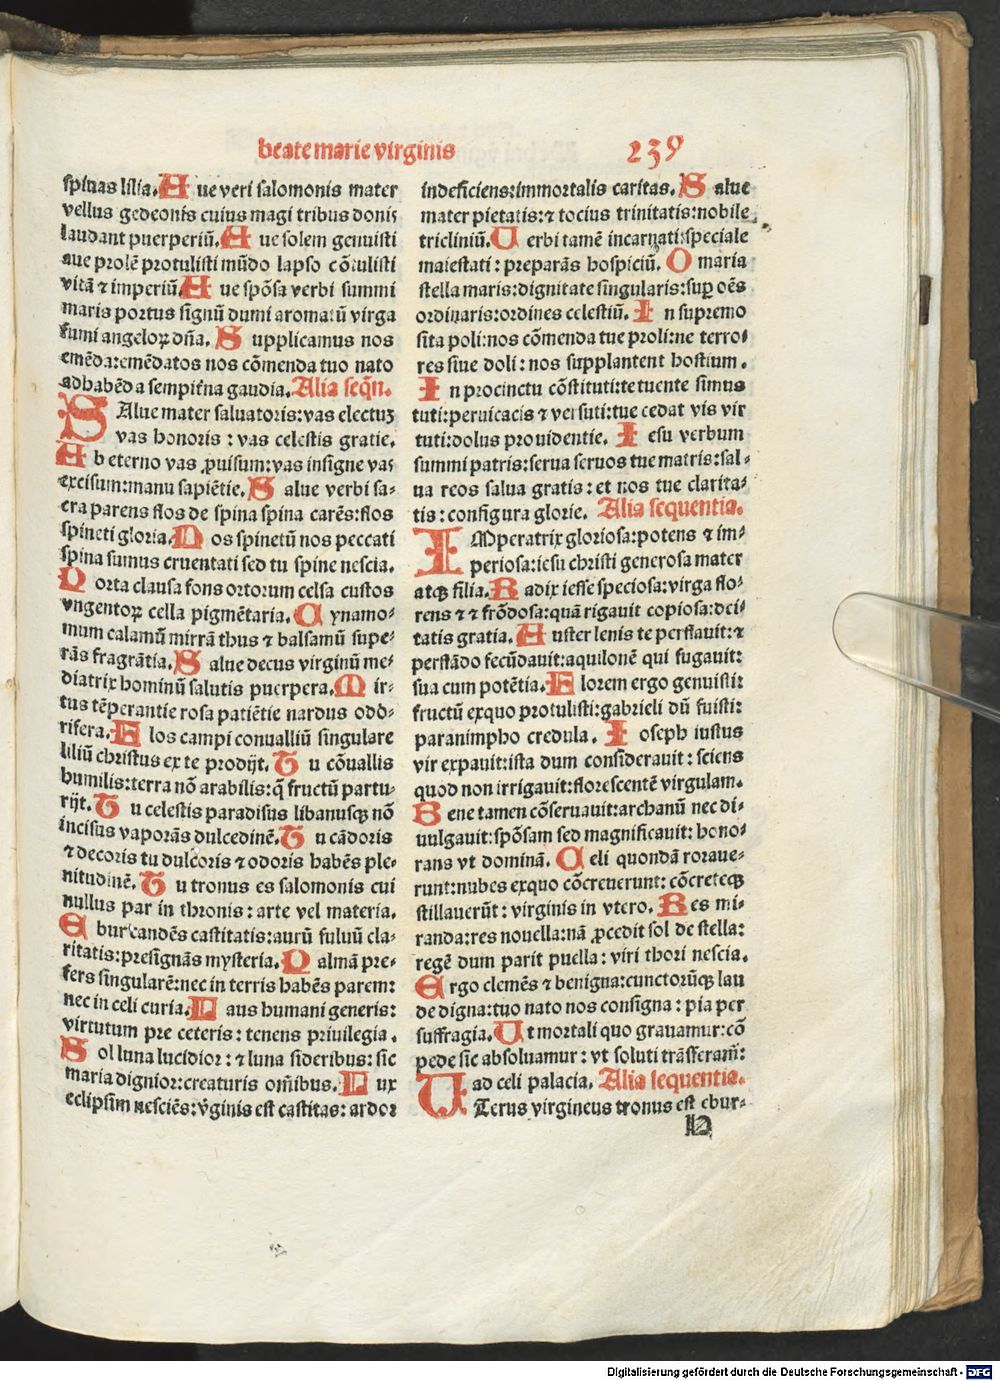 beate marie virginis
239
spinas lilia. Aue veri salomonis mater
vellus gedeonis cuius magi tribus donis
laudant puerperiũ. Aue solem genuisti
aue prolẽ protulisti mũdo lapso cõtulisti
vitã ⁊ imperiũ. Aue spõsa verbi summi
maris portus signũ dumi aromatũ virga
fumi angeloꝝ dña. Supplicamus nos
emẽda: emẽdatos nos cõmenda tuo nato
ad habẽda sempit̃na gaudia. Alia seq̃n.
SAlue mater saluatoris: vas electuʒ
vas honoris: vas celestis gratie.
Ab eterno vas ꝓuisum: vas insigne vas
excisum: manu sapiẽtie. Salue verbi sa⸗
cra parens flos de spina spina carẽs: flos
spineti gloria. Nos spinetũ nos peccati
spina sumus cruentati sed tu spine nescia.
Porta clausa fons ortorum celsa custos
vngentoꝝ cella pigmẽtaria. Cynamo⸗
mum calamũ mirrã thus ⁊ balsamũ supe⸗
rãs fragrãtia. Salue decus virginũ me⸗
diatrix hominũ salutis puerpera. Mir⸗
tus tẽperantie rosa patiẽtie nardus odo⸗
rifera. Flos campi conualliũ singulare
liliũ christus ex te prodijt. Tu cõuallis
humilis: terra nõ arabilis: q̃ fructũ partu⸗
rijt. Tu celestis paradisus libanusqꝫ nõ
incisus vaporãs dulcedinẽ. Tu cãdoris
⁊ decoris tu dulcoris ⁊ odoris habẽs ple⸗
nitudinẽ. Tu tronus es salomonis cui
nullus par in thronis: arte vel materia.
Ebur candẽs castitatis: aurũ fuluũ cla⸗
ritatis: presignãs mysteria. Palmã pre⸗
fers singularẽ: nec in terris habẽs parem:
nec in celi curia. Laus humani generis:
virtutum pre ceteris: tenens priuilegia.
Sol luna lucidior: ⁊ luna sideribus: sic
maria dignior: creaturis om̃ibus. Lux
eclipsim nesciẽs: v̓ginis est castitas: ardor
indeficiens: immortalis caritas. Salue
mater pietatis: ⁊ tocius trinitatis: nobile
tricliniũ. Uerbi tamẽ incarnati: speciale
maiestati: preparãs hospiciũ. O maria
stella maris: dignitate singularis: suꝑ oẽs
ordinaris: ordines celestiũ. In supremo
sita poli: nos cõmenda tue proli: ne terro⸗
res siue doli: nos supplantent hostium.
In procinctu cõstituti: te tuente simus
tuti: peruicacis ⁊ versuti: tue cedat vis vir
tuti: dolus prouidentie. Iesu verbum
summi patris: serua seruos tue matris: sal⸗
ua reos salua gratis: et nos tue clarita⸗
tis: configura glorie. Alia sequentia.
IMperatrix gloriosa: potens ⁊ im⸗
periosa: iesu christi generosa mater
atqꝫ filia. Radix iesse speciosa: virga flo⸗
rens ⁊ ⁊ frõdosa: quã rigauit copiosa: dei⸗
tatis gratia. Auster lenis te perflauit: ⁊
perflãdo fecũdauit: aquilonẽ qui fugauit:
sua cum potẽtia. Florem ergo genuisti:
fructũ ex quo protulisti: gabrieli dũ fuisti:
paranimpho credula. Ioseph iustus
vir expauit: ista dum considerauit: sciens
quod non irrigauit: florescentẽ virgulam.
Bene tamen cõseruauit: archanũ nec di⸗
uulgauit: spõsam sed magnificauit: hono⸗
rans vt dominã. Celi quondã roraue⸗
runt: nubes ex quo cõcreuerunt: cõcreteqꝫ
stillauerũt: virginis in vtero. Res mi⸗
randa: res nouella: nã ꝓcedit sol de stella:
regẽ dum parit puella: viri thori nescia.
Ergo clemẽs ⁊ benigna: cunctorũqꝫ lau
de digna: tuo nato nos consigna: pia per
suffragia. Ut mortali quo grauamur: cõ
pede sic absoluamur: vt soluti trãsferam̃:
ad celi palacia. Alia sequentia.
UTerus virgineus tronus est ebur⸗
N
Digitalisierung gefördert durch die Deutsche Forschungsgemeinschaft - DFG